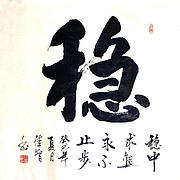 稳
稳中
求进
永不
止步
癸巳年
夏月